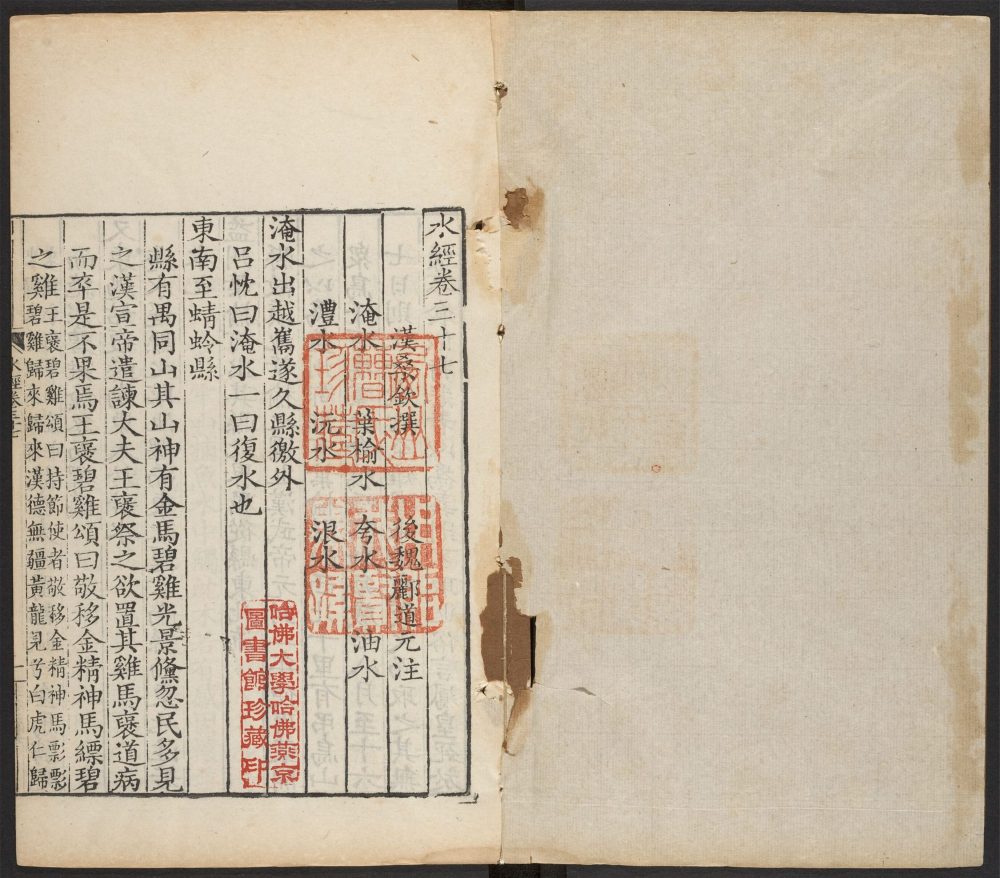 水經卷三十七
漢桑欽撰 後魏酈道元注
淹水 葉榆水 夸水 油水
澧水 沅水 泿水
淹水出越巂遂久縣徼外
呂忱曰淹水一曰復水也
東南至蜻蛉縣
縣有禺同山其山神有金馬碧雞光景儵忽民多見
之漢宣帝遣諫大夫王褒祭之欲置其雞馬褒道病
而卒是不果焉王褒碧雞頌曰敬移金精神馬縹碧
之雞王褒碧雞頌曰持節使者敬移金精神馬剽剽
碧雞歸來歸來漢德無疆黃龍見兮白虎仁歸
水經卷三十七
哈佛大學哈佛燕京
圖書館珍藏印